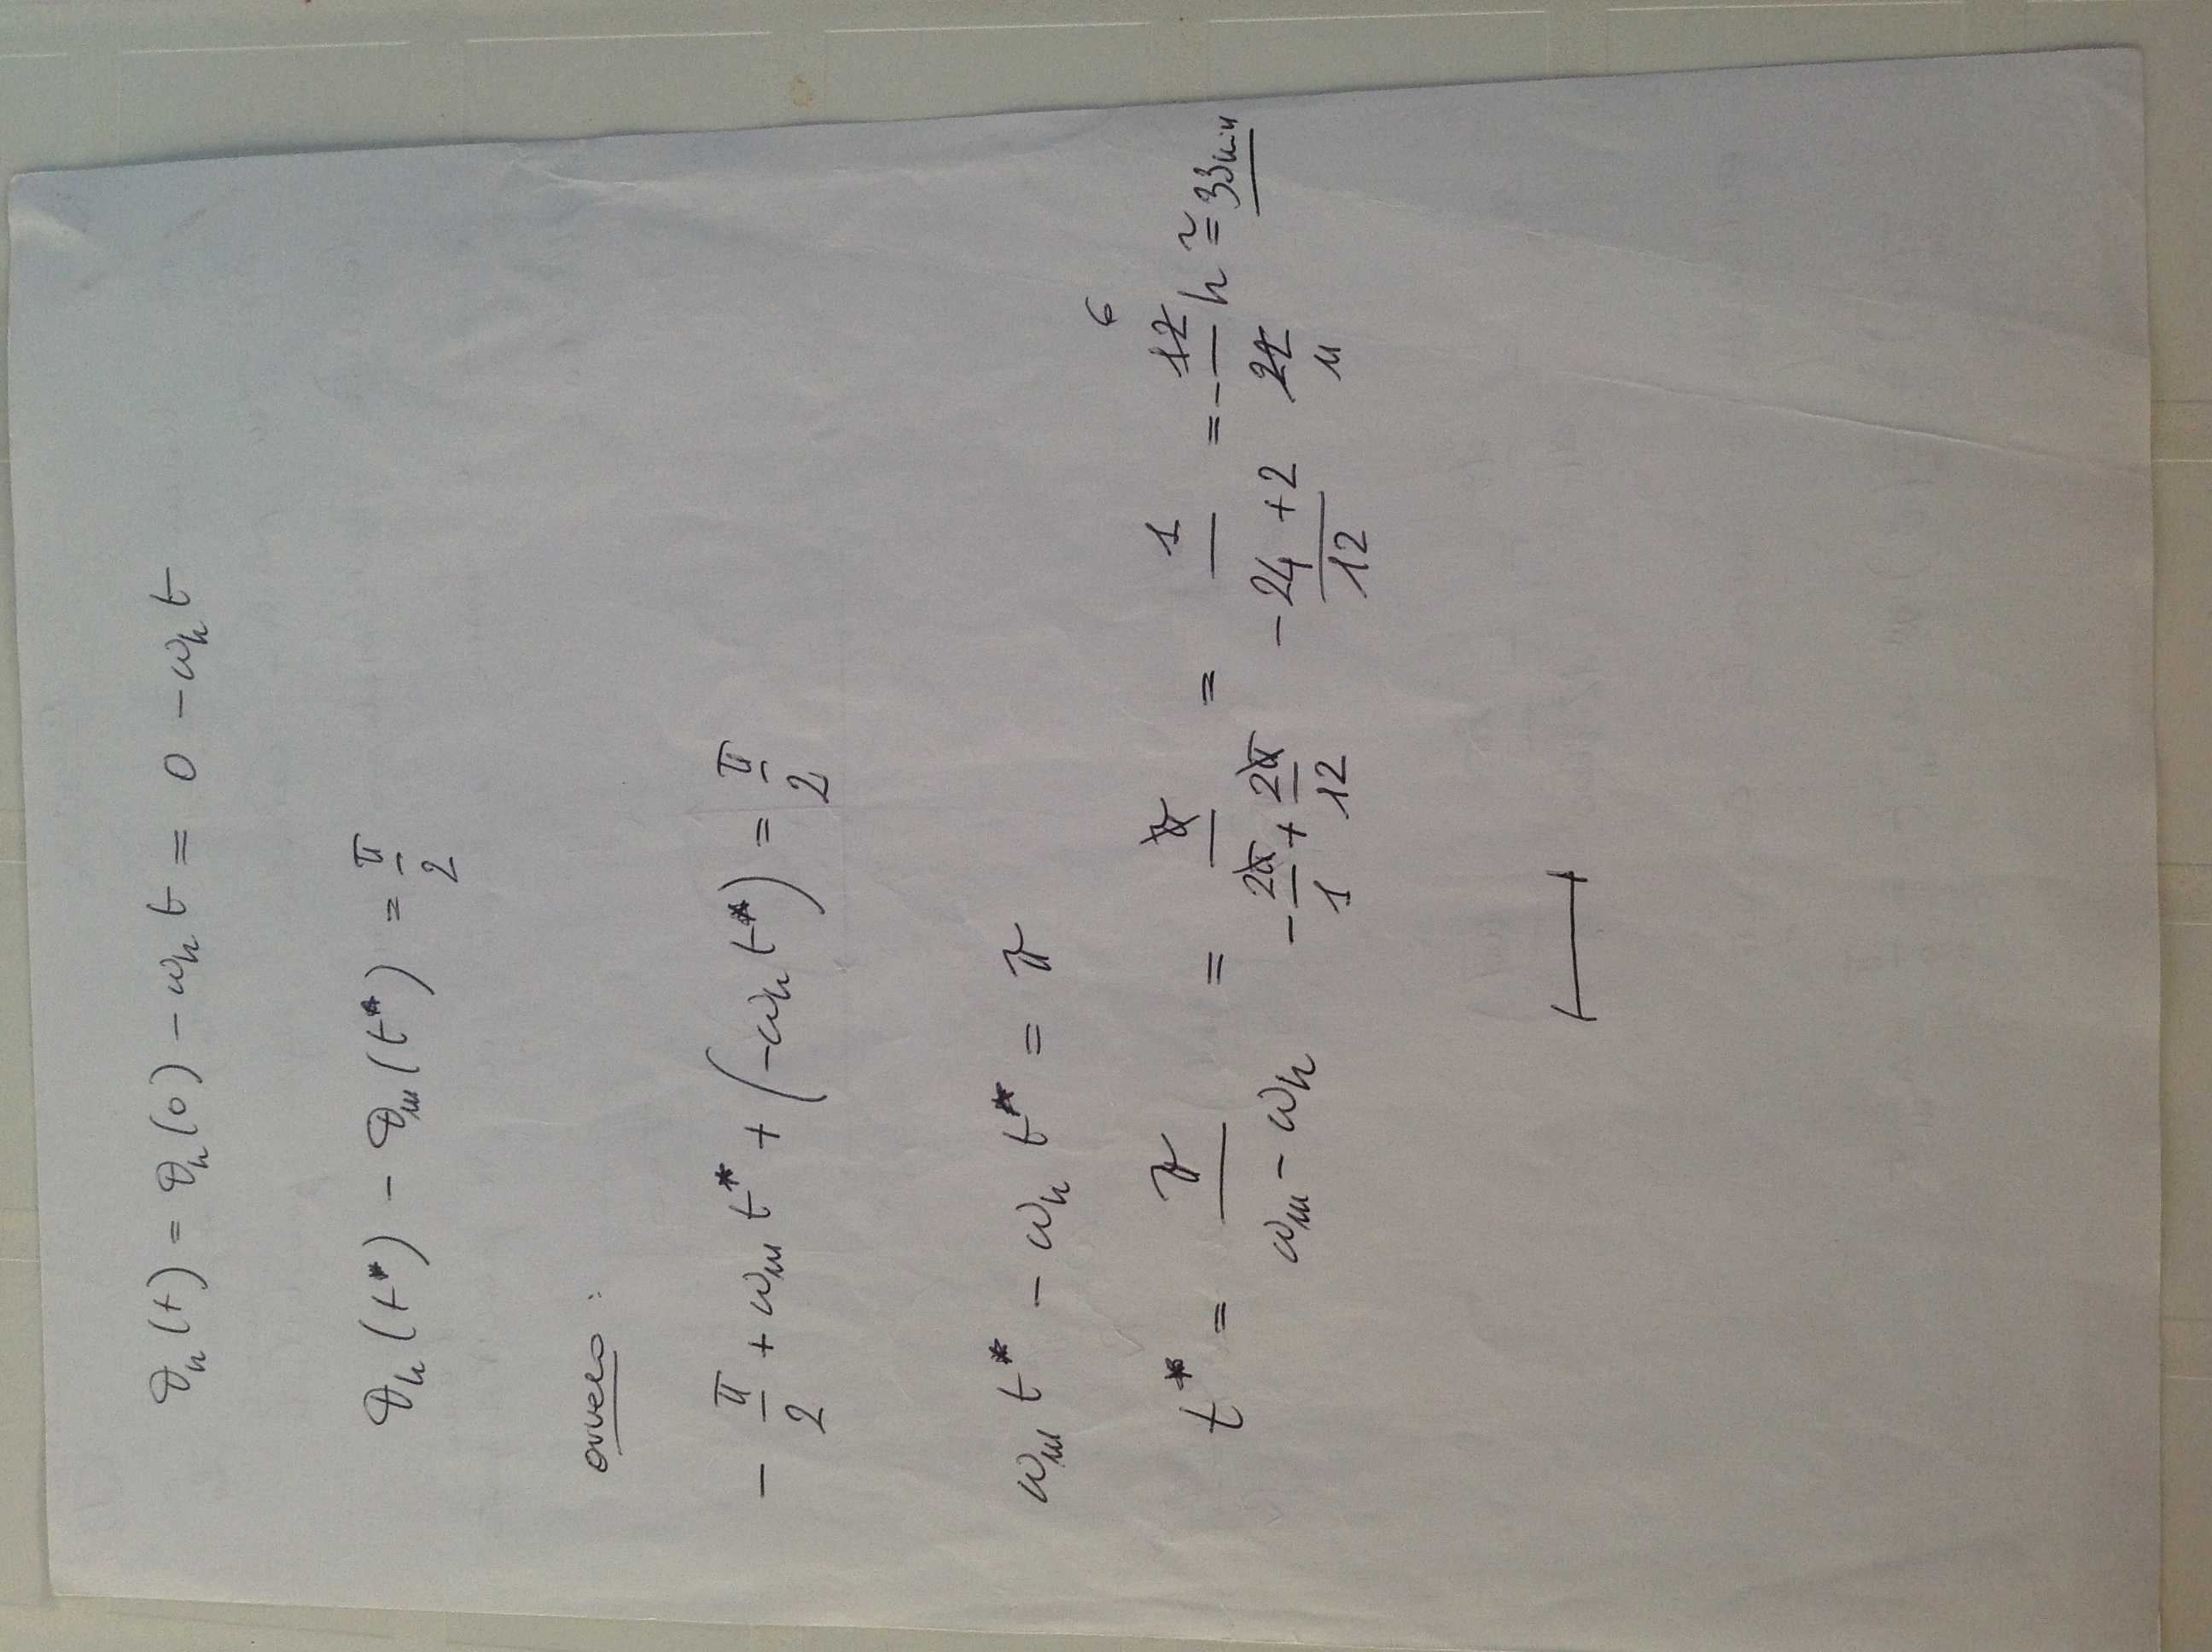 θₕ(t) = θₕ(0) − ωₕ t = 0 − ωₕ t
θₕ(t*) − θₘ(t*) = π/2
ovvero :
− π/2 + ωₘ t* + (−ωₕ t*) = π/2
ωₘ t* − ωₕ t* = π
t* = π/(ωₘ − ωₕ) = π/(−2π/1 + 2π/12) = 1/((−24 + 2)/12) = −12/22 h ≅ 33 min
6
11